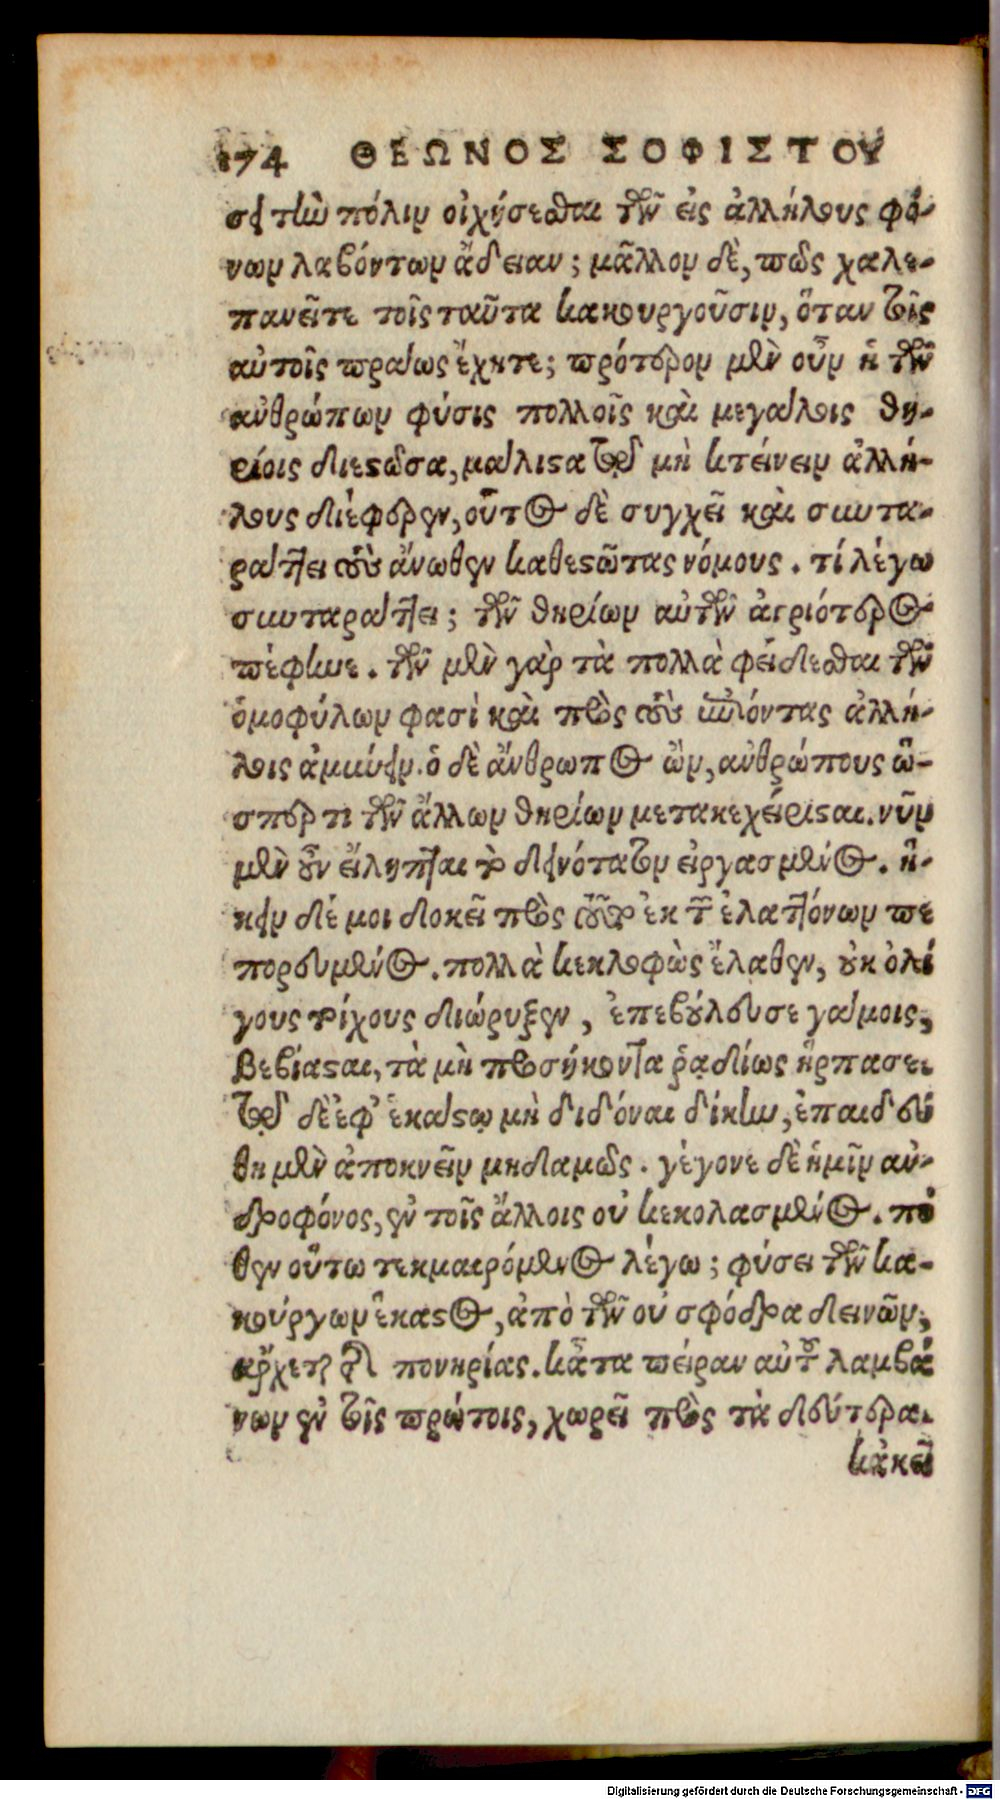 174 ΘΕΩΝΟΣ ΣΟΦΙΣΤΟΥ
σει τὴν πόλιν οἰχήσεσθαι τῶν εἰς ἀλλήλους φό-
νων λαβόντων ἄδειαν; μᾶλλον δὲ, πῶς χαλε-
πανεῖτε τοῖς ταῦτα κακουργοῦσιν, ὅταν τοῖς
αὐτοῖς πράως ἔχητε; πρότερον μὲν οὖν ἡ τῶν
ἀνθρώπων φύσις πολλοῖς καὶ μεγάλοις θη-
ρίοις διεστῶσα, μάλιστα τῷ μὴ κτείνειν ἀλλή-
λους διέφερεν, οὗτος δὲ συγχεῖ καὶ συντα-
ράττει τοὺς ἄνωθεν καθεστῶτας νόμους. τί λέγω
συνταράττει; τῶν θηρίων αὐτῶν ἀγριότερος
πέφηνε. τῶν μὲν γὰρ τὰ πολλὰ φείδεσθαι τῶν
ὁμοφύλων φασὶ καὶ πρὸς τοὺς ἐπιόντας ἀλλή-
λοις ἀμύνειν. ὁ δὲ ἄνθρωπος ὢν, ἀνθρώπους ὥ-
σπερ τι τῶν ἄλλων θηρίων μετακεχείρισται. νῦν
μὲν οὖν εἴληπται τὸ δεινότατον εἰργασμένος. ἥ-
κειν δέ μοι δοκεῖ πρὸς τοῦτο ἐκ τῶν ἐλαττόνων πε
πορευμένος. πολλὰ κεκλοφὼς ἔλαθεν, οὐκ ὀλί
γους τοίχους διώρυξεν, ἐπεβούλευσε γάμοις,
βεβίασται, τὰ μὴ προσήκοντα ῥαδίως ἥρπασε.
τῷ δὲ ἐφ' ἑκάστῳ μὴ διδόναι δίκην, ἐπαιδεύ
θη μὲν ἀποκνεῖν μηδαμῶς. γέγονε δὲ ἡμῖν ἀν-
δροφόνος, ἐν τοῖς ἄλλοις οὐ κεκολασμένος. πό
θεν οὕτω τεκμαιρόμενος λέγω; φύσει τῶν κα-
κούργων ἕκαστος, ἀπὸ τῶν οὐ σφόδρα δεινῶν,
ἄρχεται τῆς πονηρίας. κᾆτα πεῖραν αὑτοῦ λαμβά
νων ἐν τοῖς πρώτοις, χωρεῖ πρὸς τὰ δεύτερα.
κἀκεῖ
Digitalisierung gefördert durch die Deutsche Forschungsgemeinschaft - DFG